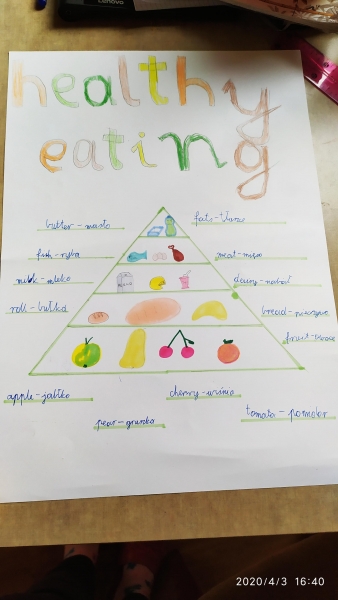 Lenovo
healthy
eating
butter - masło
fats - tłuszcze
fish - ryba
meat - mięso
milk - mleko
dairy - nabiał
roll - bułka
bread - pieczywo
fruit - owoce
apple - jabłko
cherry - wiśnia
pear - gruszka
tomato - pomidor
2020/4/3 16:40